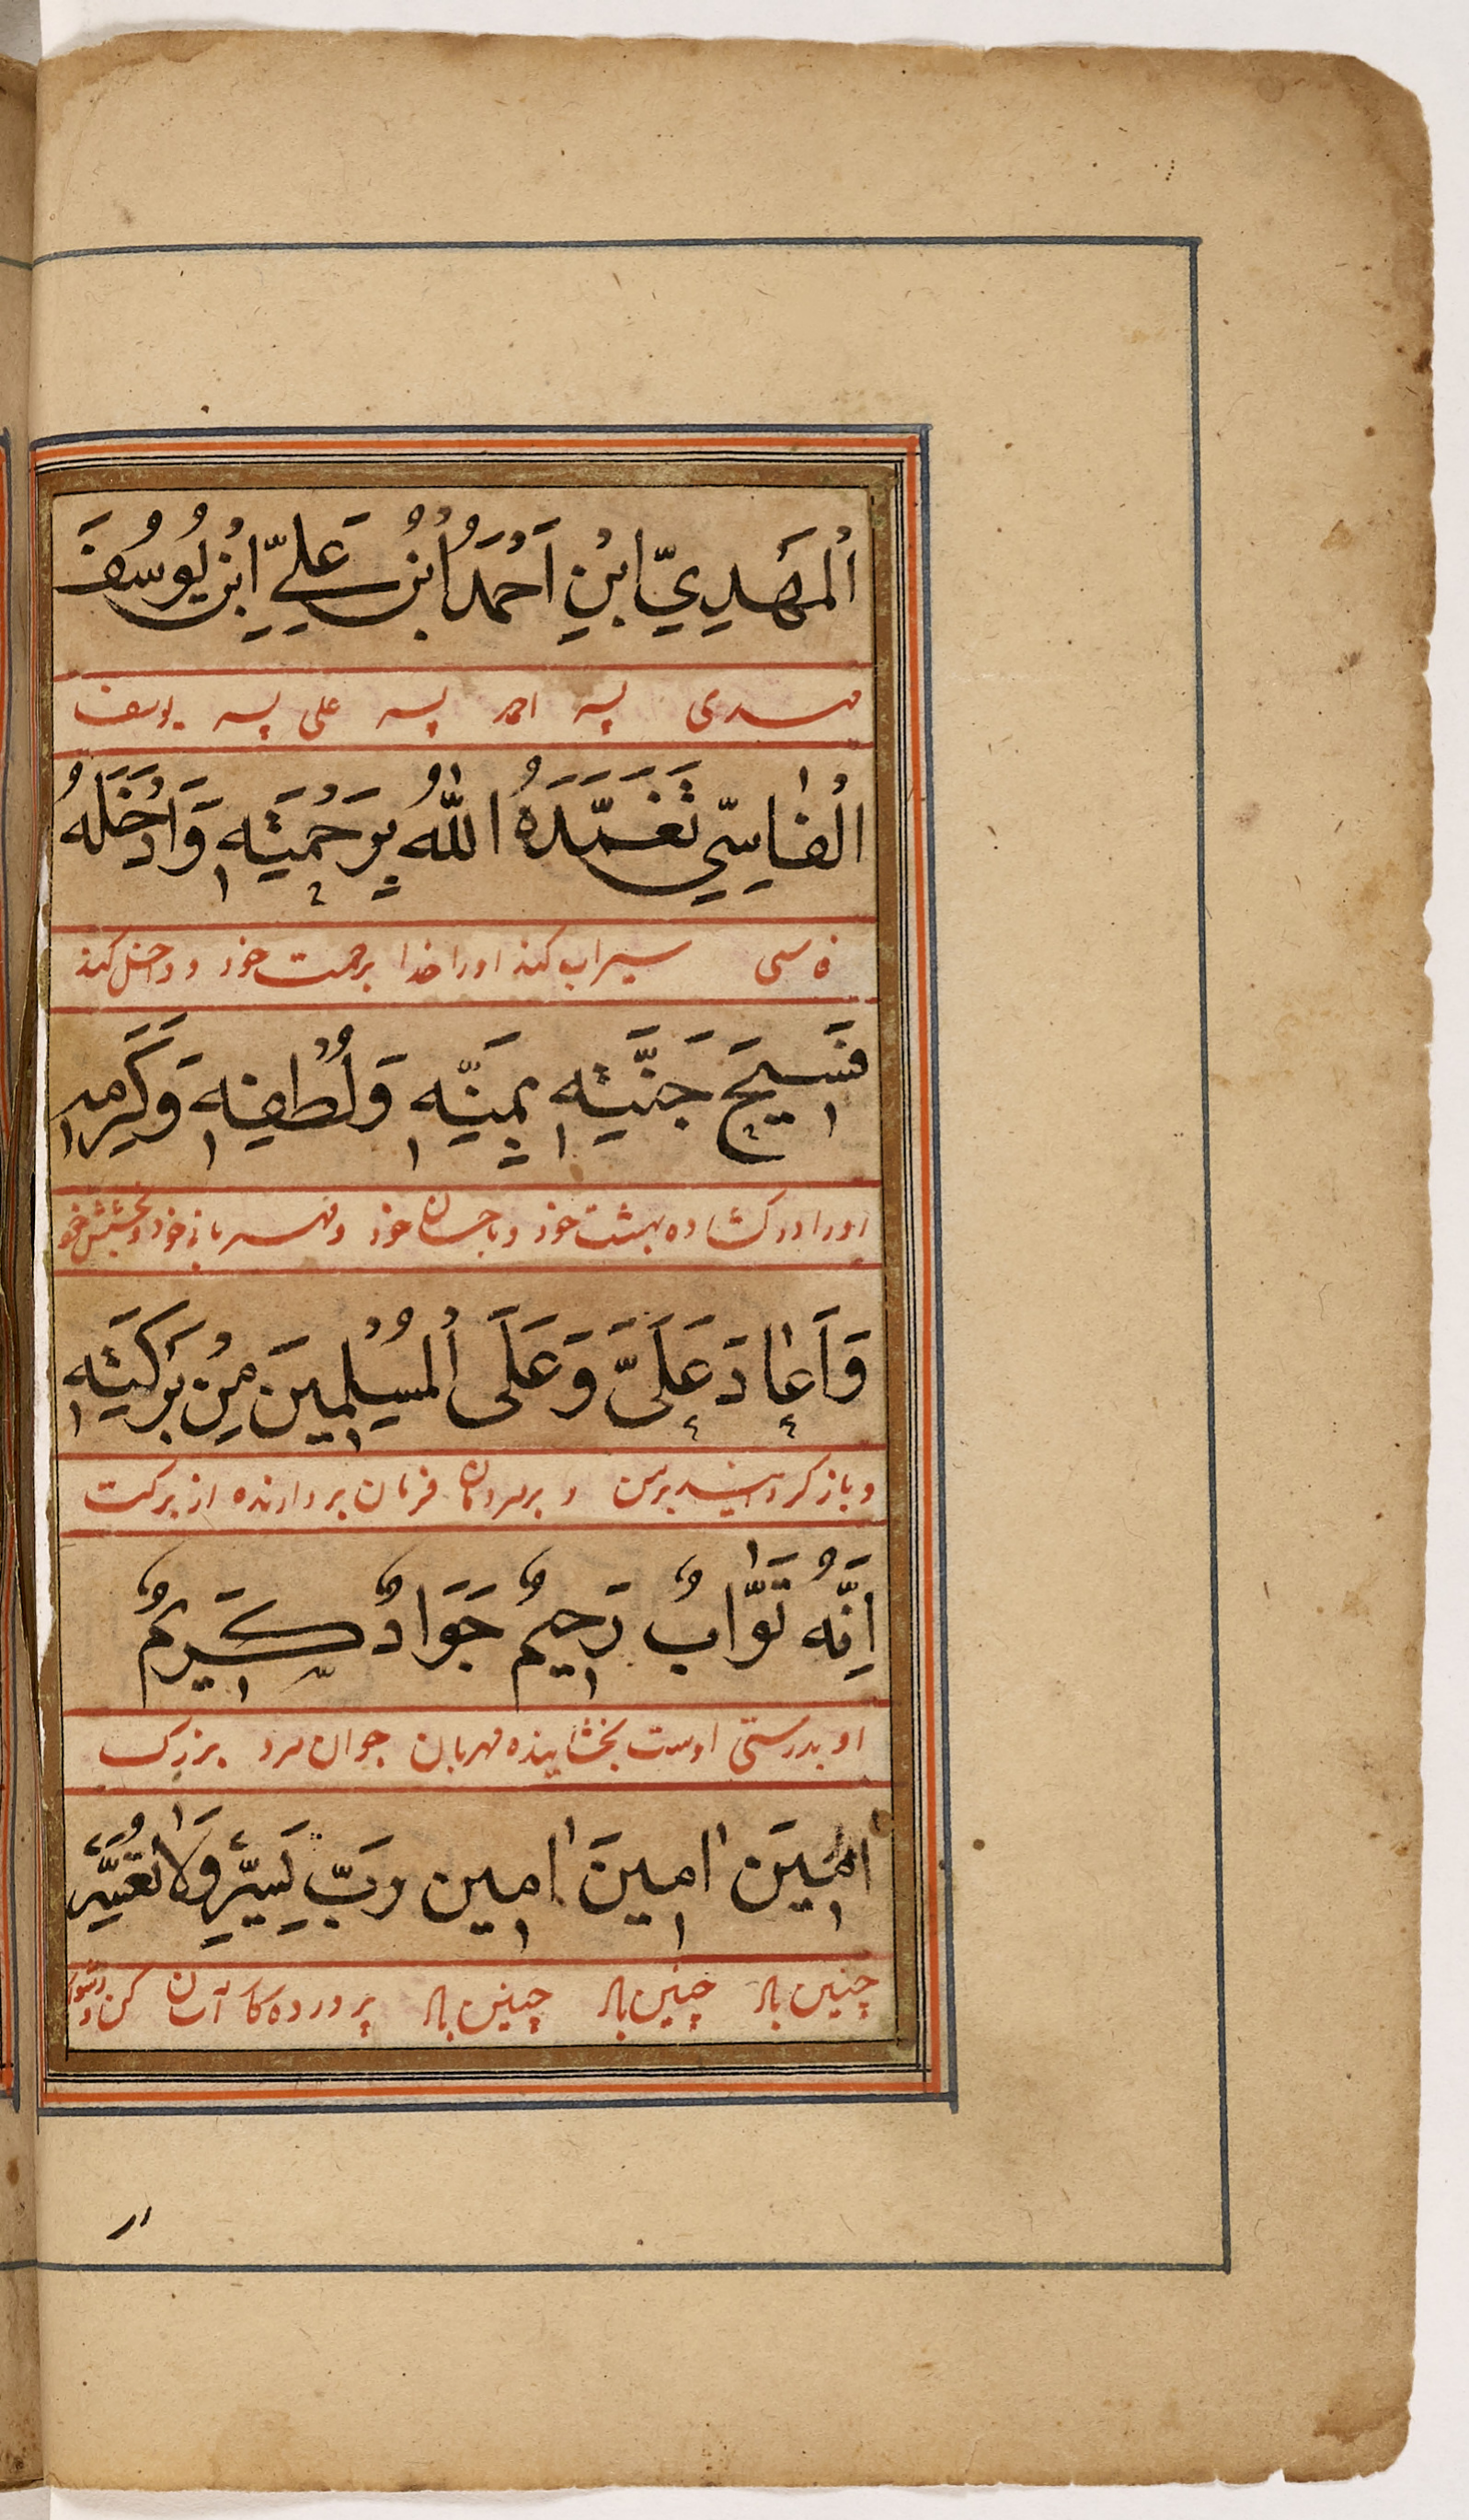 اَلْمَهْدِيِّ ابْنِ اَحْمَدُ ابْنُ عَلِيِّ ابْنِ يُوسُفَ
مهدی پسر احمد پسر علی پسر یوسف
الْفَاسِيِّ تَغَمَّدَهُ اللّٰهُ بِرَحْمَتِهِ وَاَدْخَلَهُ
فاسی سیراب کند اورا خدا برحمت خود و داخل کند
فَسِيحَ جَنَّتِهِ بِمَنِّهِ وَلُطْفِهِ وَكَرَمِهِ
اورا در کشاده بهشت خود و باحسان خود و مهربانی خود و بخشش خود
وَاَعَادَ عَلَيَّ وَعَلَى الْمُسْلِمِينَ مِنْ بَرَكَتِهِ
و باز کرداند بر من و بر مردمان فرمان بردارنده از برکت
اِنَّهُ تَوَّابٌ رَحِيمٌ جَوَادٌ كَرِيمٌ
او بدرستی اوست بخشاینده مهربان جوان مرد بزرک
اٰمِينَ اٰمِينَ اٰمِين رَبِّ يَسِّرْ وَلَا تُعَسِّرْ
چنین باد چنین باد چنین باد پروردکارا آسان کن و